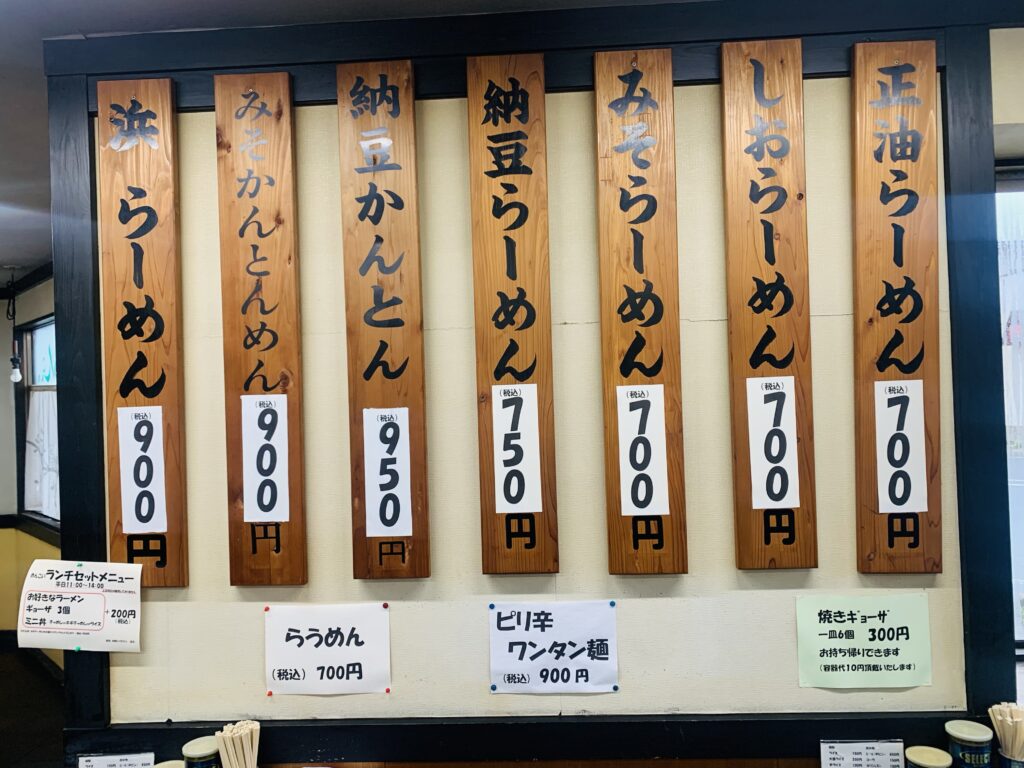 正油らーめん
(税込)
700
円
しおらーめん
(税込)
700
円
みそらーめん
(税込)
700
円
納豆らーめん
(税込)
750
円
納豆かんとん
(税込)
950
円
みそかんとんめん
(税込)
900
円
浜らーめん
(税込)
900
円
ランチセットメニュー
平日11:00～14:00
お好きなラーメン
ギョーザ 3個
ミニ丼
+200円
(税込)
らうめん
(税込) 700円
ピリ辛
ワンタン麺
(税込) 900円
焼きギョーザ
一皿6個 300円
お持ち帰りできます
(容器代10円頂戴いたします)